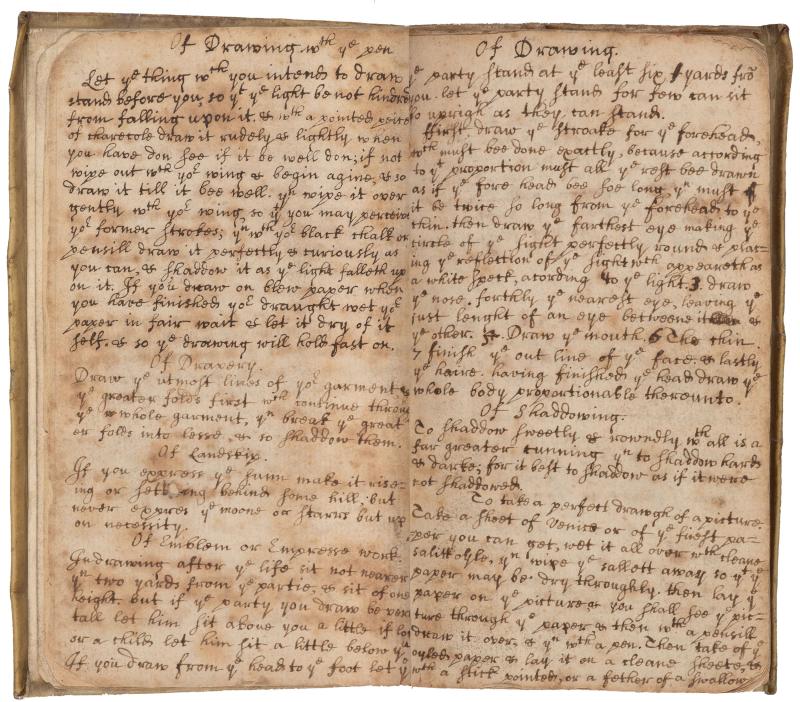 Of Drawing wth ye pen
Let ye thing wch you intend to draw
stand before you, so yt ye light be not hindred
from falling upon it, & wth a pointed peice
of charecole draw it rudely & lightly when
you have don see if it be well don; if not
wipe out wth yor wing & begin agine, & so
draw it till it bee well. yn wipe it over
gently wth yor wing, so yt you may perceive
yor former strokes; yn wth yor black chalk or
pensill draw it perfectly & curiously as
you can, & shaddow it as ye light falleth up
on it. If you draw on blew paper when
you have finished yor draught wet yor
paper in fair wait & let it dry of it
self. & so ye drawing will hold fast on.
Of Drapery.
Draw ye utmost lines of yor garment &
ye greater folds first wch continue throu
ye whole garment, yn break ye great
er folds into lesse, & so shaddow them.
Of Landskip.
If you express ye sunn make it rise-
ing or setting behind some hill. but
never expres ye moone or starrs but up
on necessity.
Of Emblem or Empresse work
In drawing after ye life sit not nearer
yn two yards from ye partie, & sit of one
height. but if ye party you draw be very
tall let him sit above you a little if low
or a child let him sit a little below yo
If you draw from ye head to ye foot let ye
Of Drawing.
ye party stand at ye least six yards frō
you. let ye party stand for few can sit
so uprigh as they can stand.
ffirst draw ye stroake for ye forehead,
wch must bee done exactly, because according
to yt proportion must all ye rest bee drawn
as if ye fore head bee soe long, yn must
it be twice so long from ye forehead to ye
chin. then draw ye farthest eye making ye
circle of ye sight perfectly round & plac-
ing ye reflection of ye sight wch appeareth as
a white speck, acording to ye light. 3. draw
ye nose. forthly ye nearest eye, leaving ye
just lenght of an eye betweene it &
ye other. 5. Draw ye mouth. 6 The chin.
7 finish ye out line of ye face. & lastly
ye haire. having finished ye head draw ye
whole body proportionable thereunto.
Of Shaddowing.
To shaddow sweetly & rowndly wth all is a
far greater cunning yn to shaddow hard
& darke; for it best to shaddow as if it were
not shaddowed.
To take a perfect drawgh of a picture.
Take a sheet of Venice or of ye finest pa-
per you can get, wet it all over wth cleane
sallitt oyle, yn wipe ye sallett away so yt ye
paper may be dry throughly. then lay ye
paper on ye picture & you shall see ye pic-
ture through ye paper & then wth a pensill
draw it over, & yn wth a pen. Then take of ye
oyled paper & lay it on a cleane sheete, &
wth a stick pointed, or a fether of a swallow